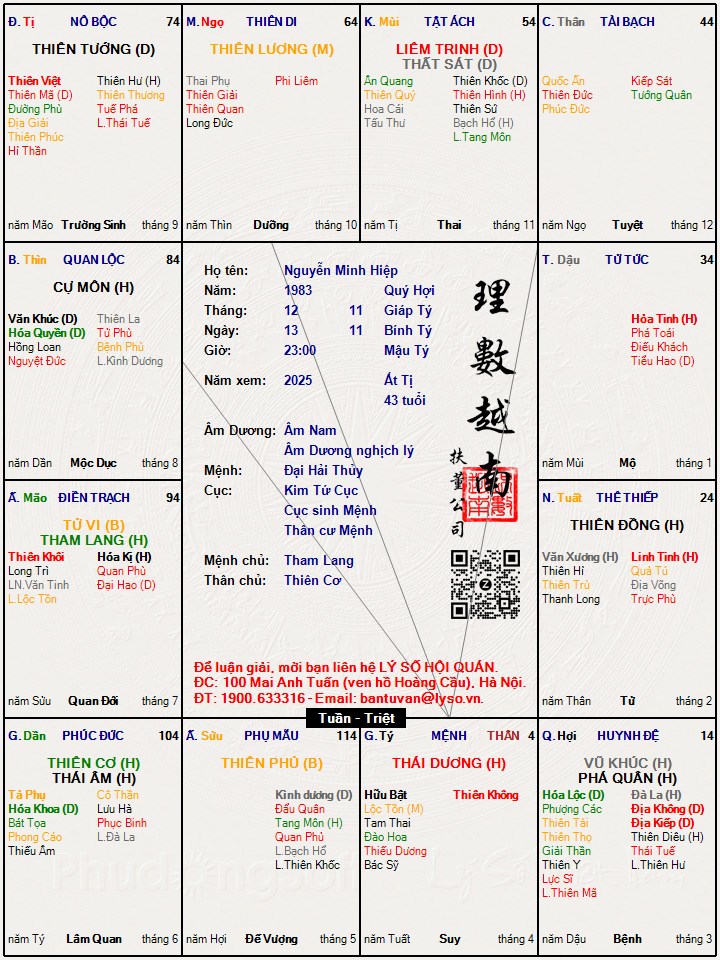 Đ. Tị NÔ BỘC 74
THIÊN TƯỚNG (D)
Thiên Việt Thiên Hư (H)
Thiên Mã (D) Thiên Thương
Đường Phù Tuế Phá
Địa Giải L.Thái Tuế
Thiên Phúc
Hỉ Thần
năm Mão Trường Sinh tháng 9
M. Ngọ THIÊN DI 64
THIÊN LƯƠNG (M)
Thai Phụ Phi Liêm
Thiên Giải
Thiên Quan
Long Đức
năm Thìn Dưỡng tháng 10
K. Mùi TẬT ÁCH 54
LIÊM TRINH (D)
THẤT SÁT (D)
Ân Quang Thiên Khốc (D)
Thiên Quý Thiên Hình (H)
Hoa Cái Thiên Sứ
Tấu Thư Bạch Hổ (H)
L.Tang Môn
năm Tị Thai tháng 11
C. Thân TÀI BẠCH 44
Quốc Ấn Kiếp Sát
Thiên Đức Tướng Quân
Phúc Đức
năm Ngọ Tuyệt tháng 12
B. Thìn QUAN LỘC 84
CỰ MÔN (H)
Văn Khúc (D) Thiên La
Hóa Quyền (D) Tử Phù
Hồng Loan Bệnh Phù
Nguyệt Đức L.Kình Dương
năm Dần Mộc Dục tháng 8
Họ tên: Nguyễn Minh Hiệp
Năm: 1983 Quý Hợi
Tháng: 12 11 Giáp Tý
Ngày: 13 11 Bính Tý
Giờ: 23:00 Mậu Tý
Năm xem: 2025 Ất Tị
43 tuổi
Âm Dương: Âm Nam
Âm Dương nghịch lý
Mệnh: Đại Hải Thủy
Cục: Kim Tứ Cục
Cục sinh Mệnh
Thân cư Mệnh
Mệnh chủ: Tham Lang
Thân chủ: Thiên Cơ
理數越南
扶董公司
Để luận giải, mời bạn liên hệ LÝ SỐ HỘI QUÁN.
ĐC: 100 Mai Anh Tuấn (ven hồ Hoàng Cầu), Hà Nội.
ĐT: 1900.633316 - Email: bantuvan@lyso.vn.
Tuần - Triệt
T. Dậu TỬ TỨC 34
Hỏa Tinh (H)
Phá Toái
Điếu Khách
Tiểu Hao (D)
năm Mùi Mộ tháng 1
Ấ. Mão ĐIỀN TRẠCH 94
TỬ VI (B)
THAM LANG (H)
Thiên Khôi Hóa Kị (H)
Long Trì Quan Phù
LN.Văn Tinh Đại Hao (D)
L.Lộc Tồn
năm Sửu Quan Đới tháng 7
N. Tuất THÊ THIẾP 24
THIÊN ĐỒNG (H)
Văn Xương (H) Linh Tinh (H)
Thiên Hỉ Quả Tú
Thiên Trù Địa Võng
Thanh Long Trực Phù
năm Thân Tử tháng 2
G. Dần PHÚC ĐỨC 104
THIÊN CƠ (H)
THÁI ÂM (H)
Tả Phụ Cô Thần
Hóa Khoa (D) Lưu Hà
Bát Tọa Phục Binh
Phong Cáo L.Đà La
Thiếu Âm
năm Tý Lâm Quan tháng 6
Ấ. Sửu PHỤ MẪU 114
THIÊN PHỦ (B)
Kình dương (D)
Đẩu Quân
Tang Môn (H)
Quan Phủ
L.Bạch Hổ
L.Thiên Khốc
năm Hợi Đế Vượng tháng 5
G. Tý MỆNH THÂN 4
THÁI DƯƠNG (H)
Hữu Bật Thiên Không
Lộc Tồn (M)
Tam Thai
Đào Hoa
Thiếu Dương
Bác Sỹ
năm Tuất Suy tháng 4
Q. Hợi HUYNH ĐỆ 14
VŨ KHÚC (H)
PHÁ QUÂN (H)
Hóa Lộc (D) Đà La (H)
Phượng Các Địa Không (D)
Thiên Tài Địa Kiếp (D)
Thiên Thọ Thiên Diêu (H)
Giải Thần Thái Tuế
Thiên Y L.Thiên Hư
Lực Sĩ
L.Thiên Mã
năm Dậu Bệnh tháng 3